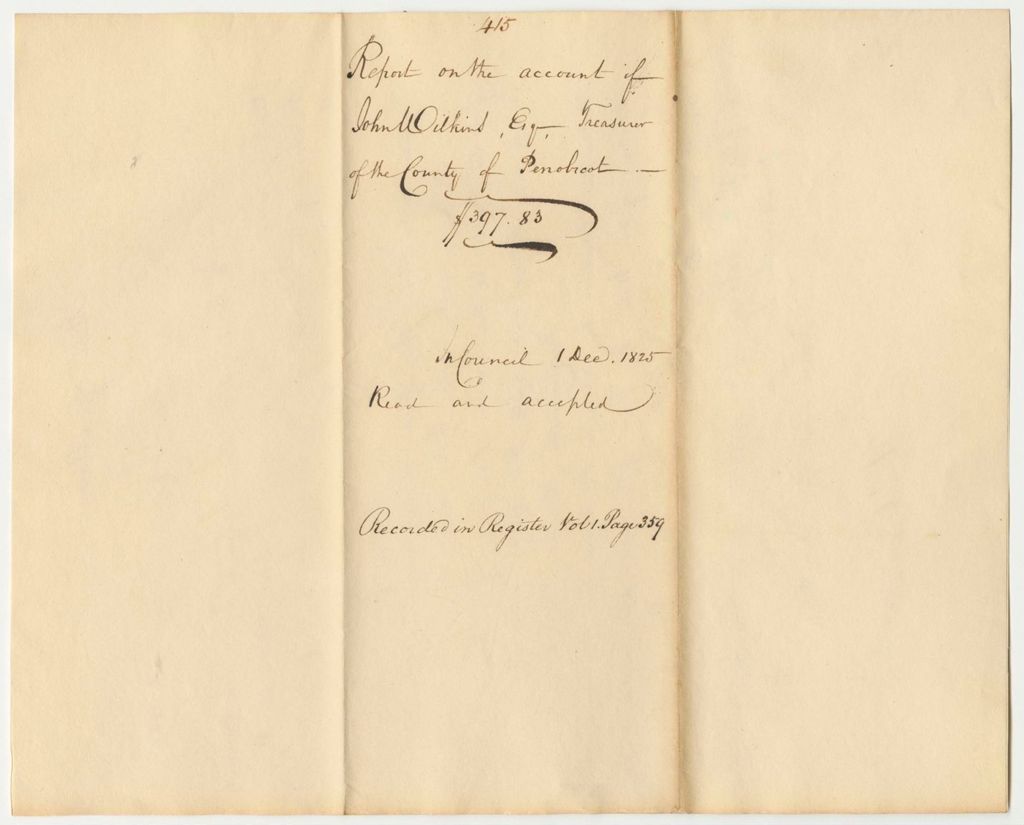 415
Report on the account of
John Wilkins, Esq, Treasurer
of the County of Penobscot. —
$397.83
In Council 1 Dec. 1825
Read and accepted
Recorded in Register Vol 1. Page 359